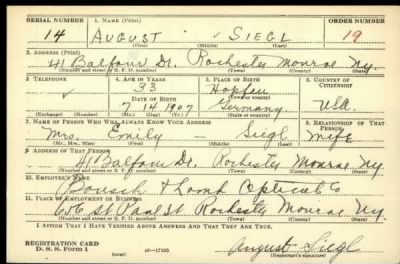 SERIAL NUMBER 1. NAME (Print) ORDER NUMBER
14 AUGUST - SIEGL 19
(First) (Middle) (Last)
2. ADDRESS (Print)
41 Balfour Dr. Rochester Monroe Ny.
(Number and street or R. F. D. number) (Town) (County) (State)
3. TELEPHONE 4. AGE IN YEARS 5. PLACE OF BIRTH 6. COUNTRY OF CITIZENSHIP
33 Hopfen
DATE OF BIRTH (Town or county)
7 14 1907 Germany USA.
(Exchange) (Number) (Mo.) (Day) (Yr.) (State or country)
7. NAME OF PERSON WHO WILL ALWAYS KNOW YOUR ADDRESS 8. RELATIONSHIP OF THAT PERSON
Mrs. Emily - Siegl Wife
(Mr., Mrs., Miss) (First) (Middle) (Last)
9. ADDRESS OF THAT PERSON
41 Balfour Dr. Rochester Monroe Ny.
(Number and street or R. F. D. number) (Town) (County) (State)
10. EMPLOYER'S NAME
Bausch & Lomb Optical Co
11. PLACE OF EMPLOYMENT OR BUSINESS
St Paul St Rochester Monroe Ny.
(Number and street or R. F. D. number) (Town) (County) (State)
I AFFIRM THAT I HAVE VERIFIED ABOVE ANSWERS AND THAT THEY ARE TRUE.
REGISTRATION CARD
D. S. S. Form 1 (over) 16-17105 August Siegl
(Registrant's signature)